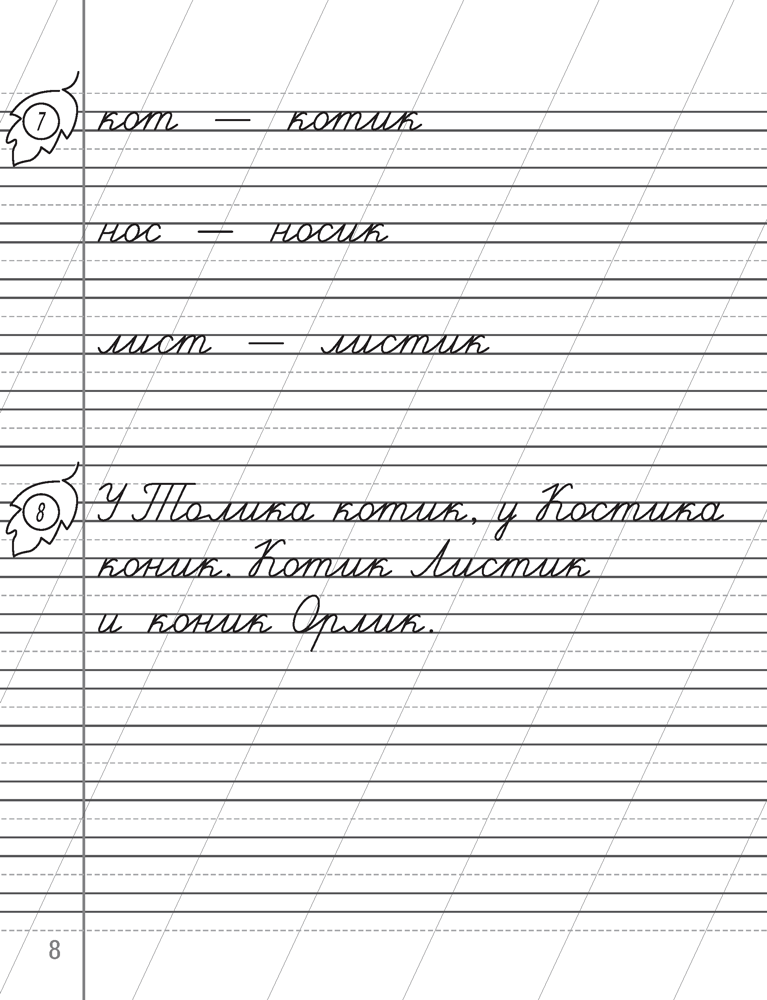 7 кот — котик
нос — носик
лист — листик
8 У Толика котик, у Костика
коник. Котик Листик
и коник Орлик.
8